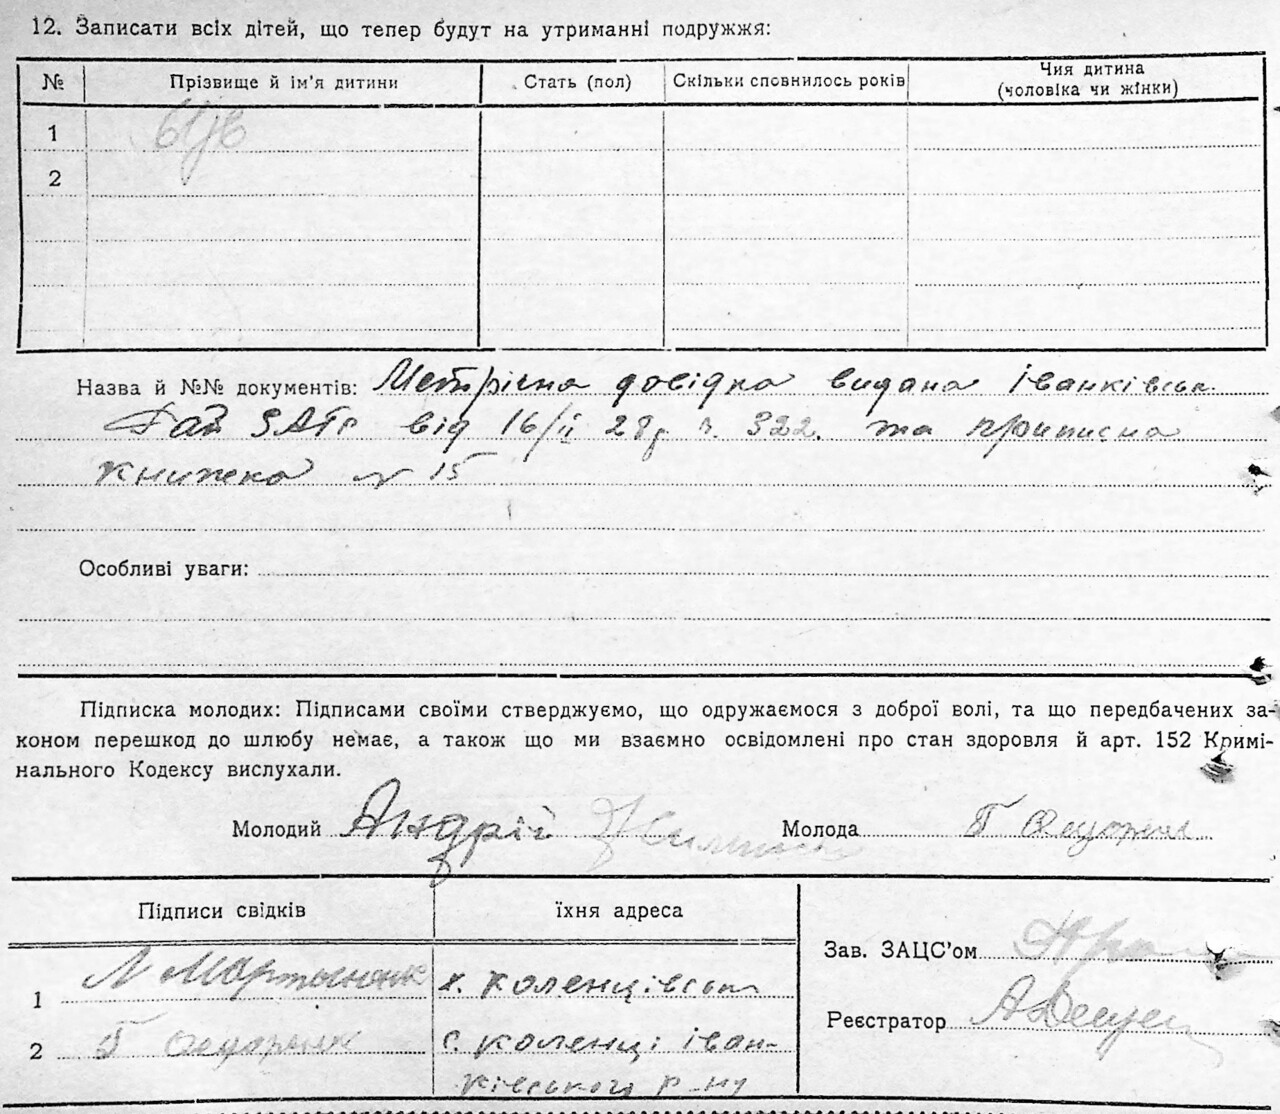 12. Записати всіх дітей, що тепер будут на утриманні подружжя:
№ Прізвище й ім'я дитини Стать (пол) Скільки сповнилось років Чия дитина
(чоловіка чи жінки)
1
2
Назва й №№ документів: Метрична довідка видана Іванківськ.
Рай ЗАГС від 16/ІІ 28р з. 322. та приписна
книжка № 15
Особливі уваги:
Підписка молодих: Підписами своїми стверджуємо, що одружаємося з доброї волі, та що передбачених за-
коном перешкод до шлюбу немає, а також що ми взаємно освідомлені про стан здоровля й арт. 152 Кримі-
нального Кодексу вислухали.
Молодий Андрій Молода Г
Підписи свідків їхня адреса
Зав. ЗАЦС'ом
1 Л Мартынюк х. Коленцівськ
Реєстратор
2 Г с. Коленці Іван-
ківського р-ну